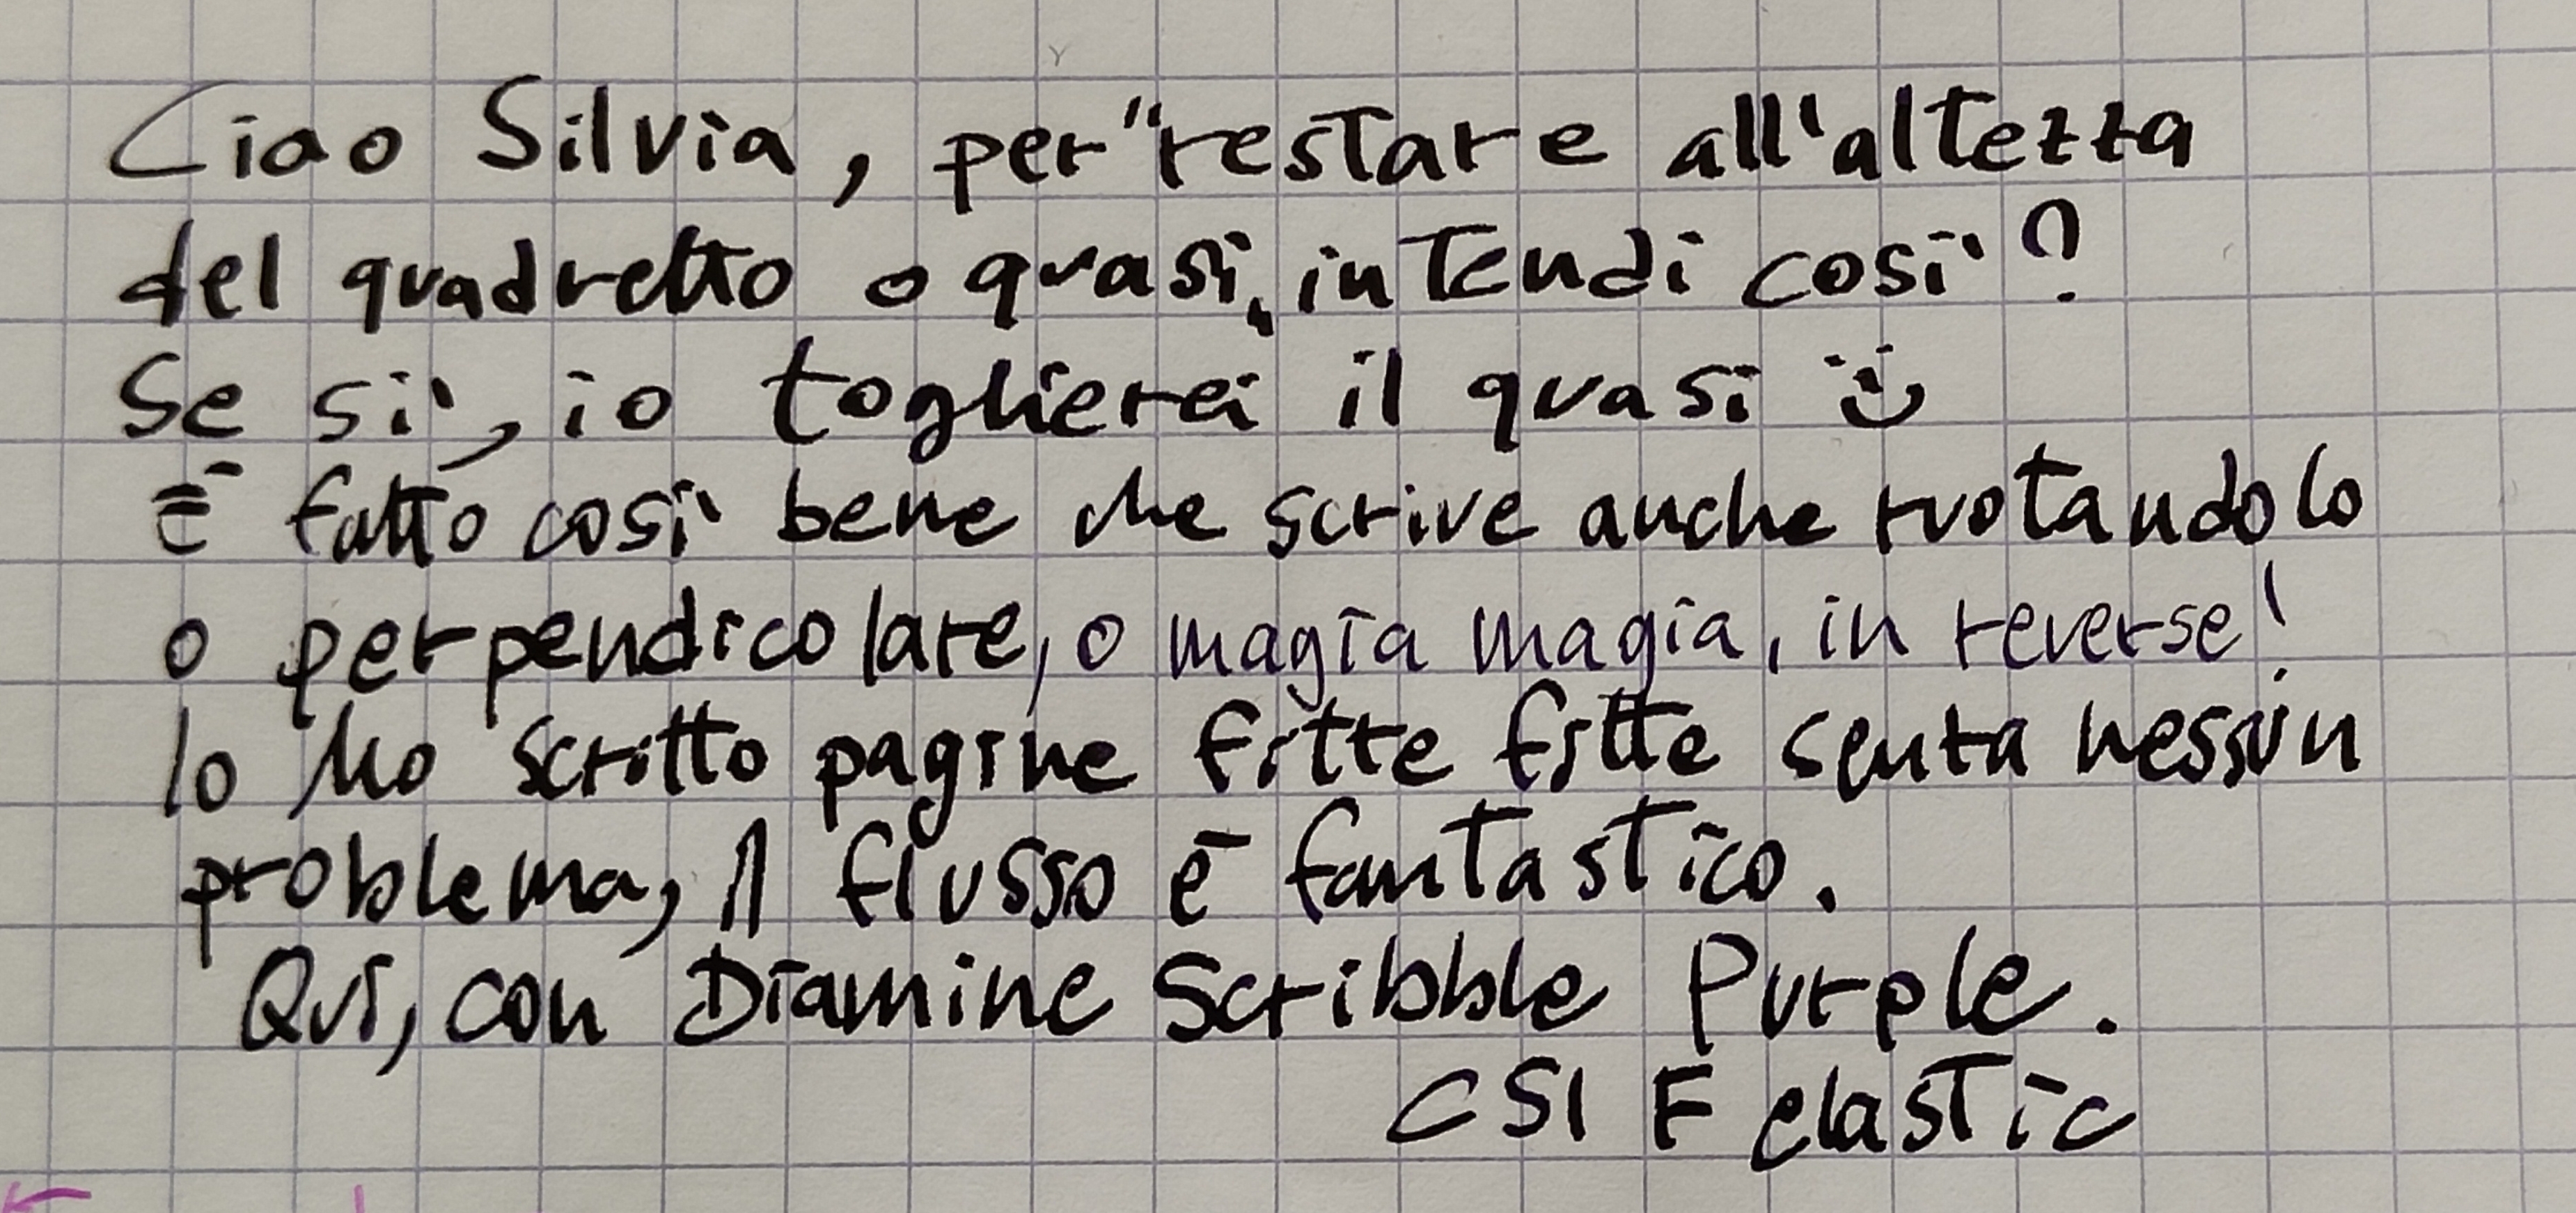 Ciao Silvia, per "restare all'altezza
del quadretto o quasi" intendi così?
Se sì, io toglierei il quasi :)
È fatto così bene che scrive anche ruotandolo
o perpendicolare, o magia magia, in reverse!
Io ho scritto pagine fitte fitte senza nessun
problema, il flusso è fantastico.
Qui, con Diamine Scribble Purple.
CSI F elastic